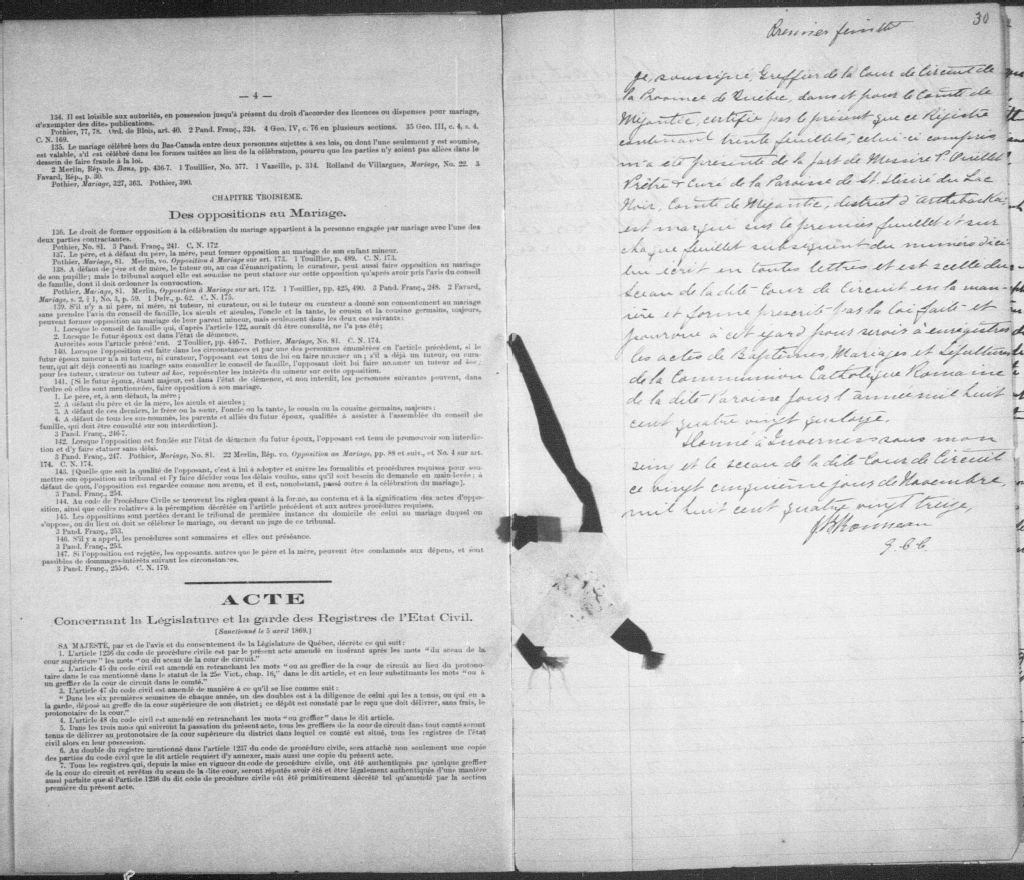 — 4 —
134. Il est loisible aux autorités, en possession jusqu'à présent du droit d'accorder des licences ou dispenses pour mariage,
d'exempter des dites publications.
Pothier, 77, 78. Ord. de Blois, art. 40. 2 Pand. Franç., 324. 4 Geo. IV, c. 76 en plusieurs sections. 35 Geo. III, c. 4, s. 4.
C. N. 169.
135. Le mariage célébré hors du Bas-Canada entre deux personnes sujettes à ses lois, ou dont l'une seulement y est soumise,
est valable, s'il est célébré dans les formes usitées au lieu de la célébration, pourvu que les parties n'y soient pas allées dans le
dessein de faire fraude à la loi.
2 Merlin, Rép. vo. Bans, pp. 436-7. 1 Touillier, No. 577. 1 Vazeille, p. 314. Rolland de Villargues, Mariage, No. 22. 3
Favard, Rép., p. 30.
Pothier, Mariage, 327, 363. Pothier, 390.
CHAPITRE TROISIÈME.
Des oppositions au Mariage.
136. Le droit de former opposition à la célébration du mariage appartient à la personne engagée par mariage avec l'une des
deux parties contractantes.
Pothier, No. 81. 3 Pand. Franç., 241. C. N. 172.
137. Le père, et à défaut du père, la mère, peut former opposition au mariage de son enfant mineur.
Pothier, Mariage, 81. Merlin, vo. Opposition à Mariage sur art. 173. 1 Touillier, p. 489. C. N. 173.
138. A défaut de père et de mère, le tuteur ou, au cas d'émancipation, le curateur, peut aussi faire opposition au mariage
de son pupille; mais le tribunal auquel elle est soumise ne peut statuer sur cette opposition qu'après avoir pris l'avis du conseil
de famille, dont il doit ordonner la convocation.
Pothier, Mariage, 81. Merlin, Opposition à Mariage sur art. 172. 1 Touillier, pp. 425, 490. 3 Pand. Franç., 248. 2 Favard,
Mariage, s. 2, § 1, No. 3, p. 59. 1 Delv., p. 62. C. N. 175.
139. S'il n'y a ni père, ni mère, ni tuteur, ni curateur, ou si le tuteur ou curateur a donné son consentement au mariage
sans prendre l'avis du conseil de famille, les aïeuls et aïeules, l'oncle et la tante, le cousin et la cousine germains, majeurs,
peuvent former opposition au mariage de leur parent mineur, mais seulement dans les deux cas suivants:
1. Lorsque le conseil de famille qui, d'après l'article 122, aurait dû être consulté, ne l'a pas été;
2. Lorsque le futur époux est dans l'état de démence.
Autorités sous l'article précédent. 2 Touillier, pp. 446-7. Pothier, Mariage, No. 81. C. N. 174.
140. Lorsque l'opposition est faite dans les circonstances et par une des personnes énumérées en l'article précédent, si le
futur époux mineur n'a ni tuteur, ni curateur, l'opposant est tenu de lui en faire nommer un; s'il a déjà un tuteur, ou cura-
teur, qui ait déjà consenti au mariage sans consulter le conseil de famille, l'opposant doit lui faire nommer un tuteur ad hoc;
pour les tuteur, curateur ou tuteur ad hoc, représenter les intérêts du mineur sur cette opposition.
141. [Si le futur époux, étant majeur, est dans l'état de démence, et non interdit, les personnes suivantes peuvent, dans
l'ordre où elles sont mentionnées, faire opposition à son mariage.
1. Le père, et, à son défaut, la mère;
2. A défaut du père et de la mère, les aïeuls et aïeules;
3. A défaut de ces derniers, le frère ou la sœur, l'oncle ou la tante, le cousin ou la cousine germains, majeurs;
4. A défaut de tous les sus-nommés, les parents et alliés du futur époux, qualifiés à assister à l'assemblée du conseil de
famille, qui doit être consulté sur son interdiction].
3 Pand. Franç., 246-7.
142. Lorsque l'opposition est fondée sur l'état de démence du futur époux, l'opposant est tenu de promouvoir son interdic-
tion et d'y faire statuer sans délai.
3 Pand. Franç., 247. Pothier, Mariage, No. 81. 22 Merlin, Rép. vo. Opposition au Mariage, pp. 88 et suiv., et No. 4 sur art.
174. C. N. 174.
143. [Quelle que soit la qualité de l'opposant, c'est à lui à adopter et suivre les formalités et procédures requises pour sou-
mettre son opposition au tribunal et l'y faire décider sous les délais voulus, sans qu'il soit besoin de demande en main-levée; à
défaut de quoi, l'opposition est regardée comme non avenu, et il est, nonobstant, passé outre à la célébration du mariage].
3 Pand. Franç., 254.
144. Au code de Procédure Civile se trouvent les règles quant à la forme, au contenu et à la signification des actes d'oppo-
sition, ainsi que celles relatives à la péremption décrétée en l'article précédent et aux autres procédures requises.
145. Les oppositions sont portées devant le tribunal de première instance du domicile de celui au mariage duquel on
s'oppose, ou du lieu où doit se célébrer le mariage, ou devant un juge de ce tribunal.
3 Pand. Franç., 253.
146. S'il y a appel, les procédures sont sommaires et elles ont préséance.
3 Pand. Franç., 253.
147. Si l'opposition est rejetée, les opposants, autres que le père et la mère, peuvent être condamnés aux dépens, et sont
passibles de dommages-intérêts suivant les circonstances.
3 Pand. Franç., 255-6. C. N. 179.
ACTE
Concernant la Législature et la garde des Registres de l'Etat Civil.
[Sanctionné le 5 avril 1869.]
SA MAJESTÉ, par et de l'avis et du consentement de la Législature de Québec, décrète ce qui suit:
1. L'article 1236 du code de procédure civile est par le présent acte amendé en insérant après les mots "du sceau de la
cour supérieure" les mots "ou du sceau de la cour de circuit."
2. L'article 45 du code civil est amendé en retranchant les mots "ou au greffier de la cour de circuit au lieu du protono-
taire dans le cas mentionné dans le statut de la 25e Vict., chap. 16," dans le dit article, et en leur substituants les mots "ou à
un greffier de la cour de circuit dans le comté."
3. L'article 47 du code civil est amendé de manière à ce qu'il se lise comme suit:
"Dans les six premières semaines de chaque année, un des doubles est à la diligence de celui qui les a tenus, ou qui en a
la garde, déposé au greffe de la cour supérieure de son district; ce dépôt est constaté par le reçu que doit délivrer, sans frais, le
protonotaire de la cour."
4. L'article 48 du code civil est amendé en retranchant les mots "ou greffier" dans le dit article.
5. Dans les trois mois qui suivront la passation du présent acte, tous les greffiers de la cour de circuit dans tout comté seront
tenus de délivrer au protonotaire de la cour supérieure du district dans lequel ce comté est situé, tous les registres de l'état
civil alors en leur possession.
6. Au double du registre mentionné dans l'article 1237 du code de procédure civile, sera attaché non seulement une copie
des parties du code civil que le dit article requiert d'y annexer, mais aussi une copie du présent acte.
7. Tous les registres qui, depuis la mise en vigueur du code de procédure civile, ont été authentiqués par quelque greffier
de la cour de circuit et revêtus du sceau de la dite cour, seront réputés avoir été et être légalement authentiqués d'une manière
aussi parfaite que si l'article 1236 du dit code de procédure civile eût été primitivement décrété tel qu'amendé par la section
première du présent acte.
30
Premier feuillet
Je, soussigné, Greffier de la Cour de Circuit de
la Province de Québec, dans et pour le Comté de
Mégantic, certifie par le présent que ce Régistre
contenant trente feuillets, celui-ci compris
m'a été présenté de la part de Messire P. Ouellet
Prêtre & Curé de la Paroisse de St. Désiré du Lac
Noir, Comté de Mégantic, district d'Arthabaska,
est marqué sur le premier feuillet et sur
chaque feuillet subséquent du numéro d'icé-
lui écrit en toutes lettres et est scellé du
Sceau de la dite Cour de Circuit en la man-
ière et forme prescrite par la loi faite et
pourvue à cet égard pour servir à enregistrer
les actes de Baptêmes, Mariages et Sépultures
de la Communion Catholique Romaine
de la dite Paroisse pour l'année mil huit
cent quatre vingt quatorze.
Donné à Inverness sous mon
seing et le sceau de la dite Cour de Circuit
ce vingt cinquième jour de Novembre,
mil huit cent quatre vingt treize,
G. C. C.